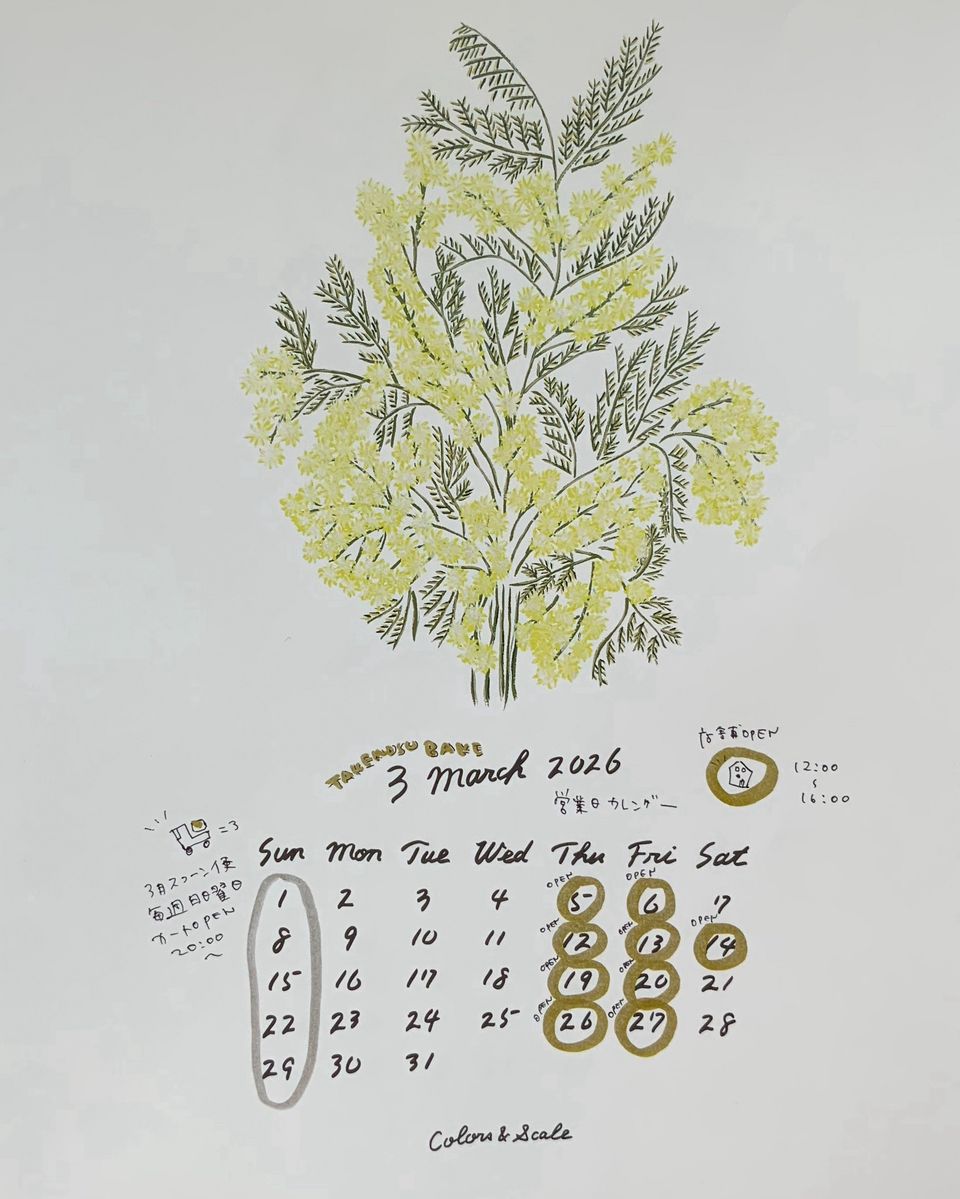 TAKENOSU BAKE
3 March 2026
営業日カレンダー
店舗OPEN
12:00
~
16:00
3月スコーン便
毎週日曜日
カートOPEN
20:00
~
Sun Mon Tue Wed Thu Fri Sat
OPEN OPEN
1 2 3 4 5 6 7
OPEN OPEN OPEN
8 9 10 11 12 13 14
OPEN OPEN
15 16 17 18 19 20 21
OPEN OPEN
22 23 24 25 26 27 28
29 30 31
Colors & Scale